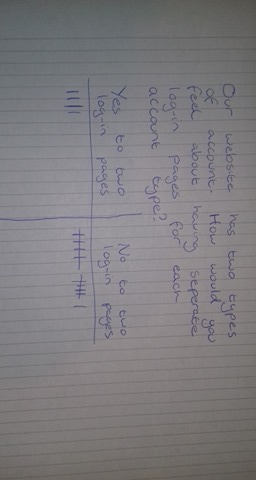 Our website has two types
of account. How would you
feel about having seperate
log-in pages for each
account type?
Yes to two
log-in pages
No to two
log-in pages